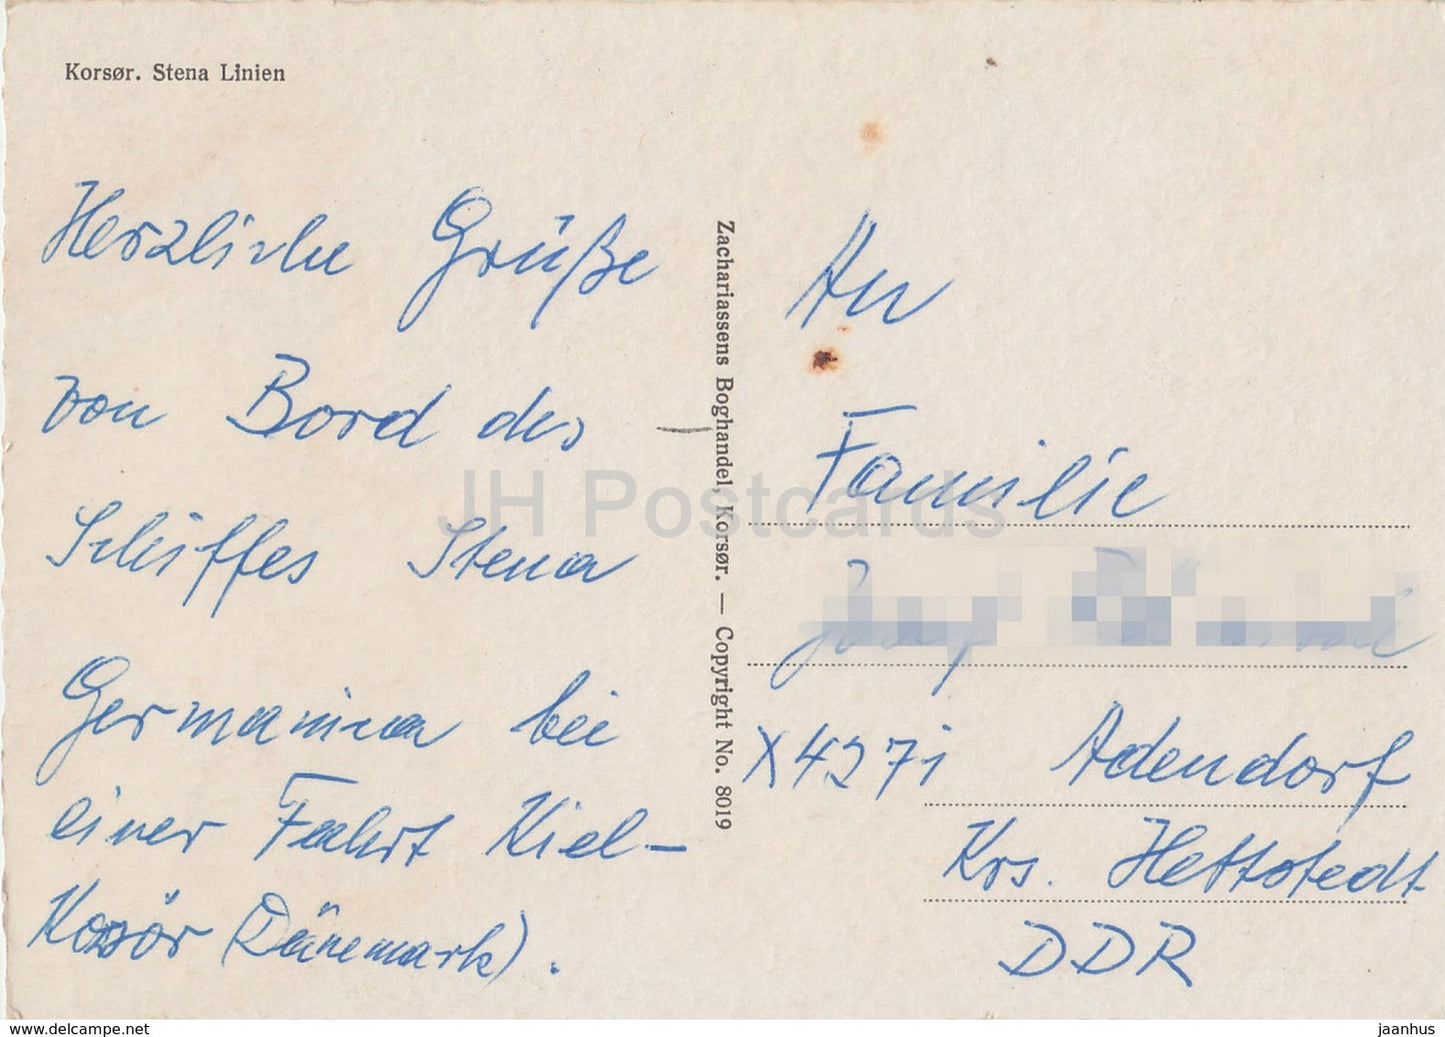 Korsør. Stena Linien
Herzliche Grüße
von Bord des
Schiffes Stena
Germanica bei
einer Fahrt Kiel-
Korsör (Dänemark).
Zachariassens Boghandel, Korsør. — Copyright No. 8019
An
Familie
X4271 Adendorf
Krs. Hettstedt
DDR
JH Postcards
www.delcampe.net
jaanhus